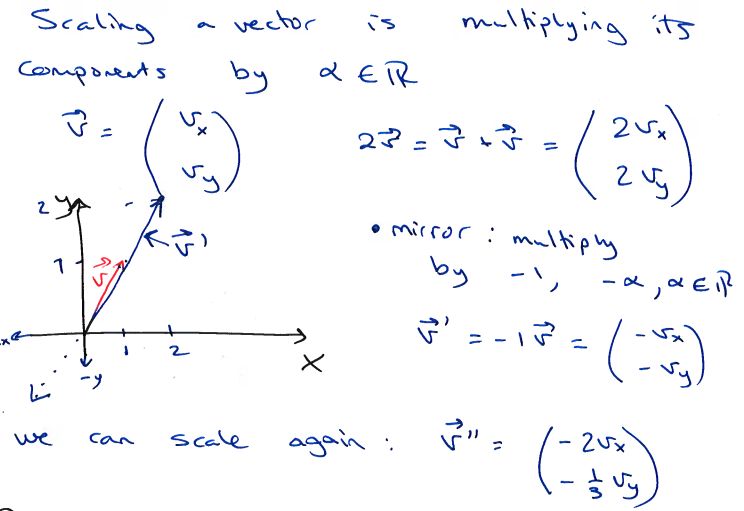 Scaling a vector is multiplying its
components by α ∈ ℝ
v⃗ = (v_x v_y)
2v⃗ = v⃗ + v⃗ = (2v_x 2v_y)
2 y
1
v⃗
v⃗'
-x
1 2
x
-y
• mirror : multiply
by -1, -α, α ∈ ℝ
v⃗' = -1 v⃗ = (-v_x -v_y)
we can scale again : v⃗'' = (-2v_x -1/3 v_y)